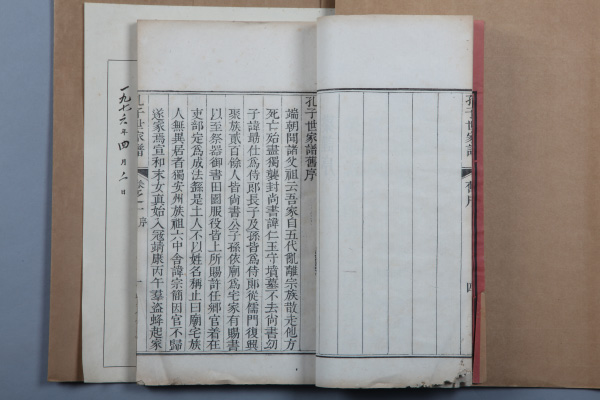 孔子世家譜
舊序
四
孔子世家譜舊序
端朝聞諸父祖云吾家自五代亂離宗族散走他方
死亡殆盡獨襲封尚書諱仁玉守墳墓不去尚書幼
子諱勗仕爲侍郎長子及孫皆爲侍郎從儒門復興
聚族貳百餘人皆尚書公子孫依廟爲宅家有賜書
以至祭器御書田園服役皆上所賜許任鄉官着在
吏部定爲成法繇是士人不以姓名稱止曰廟宅族
人無異居者獨安州族祖六中舍諱宗簡因官不歸
遂家焉宣和末女真始入寇靖康丙午羣盜蜂起家
孔子世家譜
卷之一 序
一
一九七六年四月二日